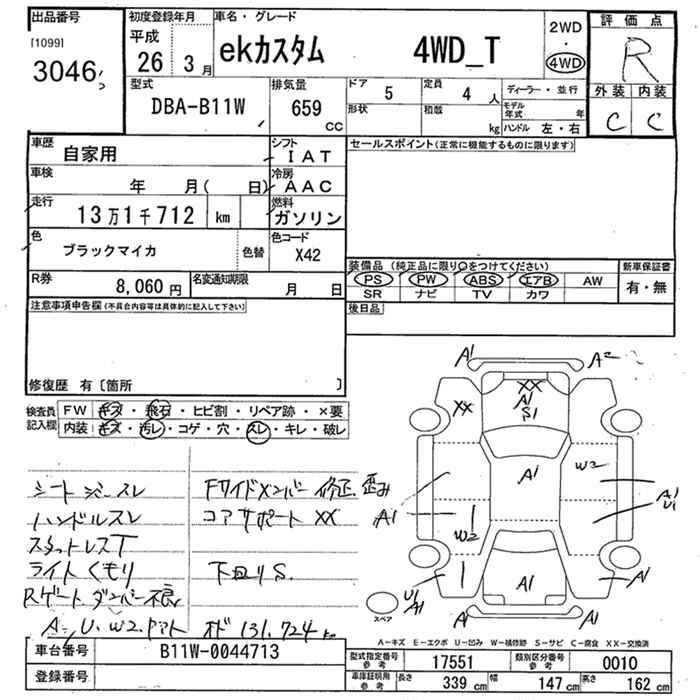 出品番号 初度登録年月 車名・グレード 評価点
[1099] 平成 2WD
3046 26 3月 ekカスタム 4WD_T ・ R
4WD
型式 排気量 ドア 5 定員 4 人 ディーラー・並行 外装 内装
DBA-B11W 659 cc 形状 積載 kg モデル年式 年 C C
ハンドル 左・右
車歴 自家用 シフト IAT セールスポイント(正常に機能するものに限ります)
車検 年 月( 日) 冷房 AAC
走行 13万1千712 km 燃料 ガソリン
色 ブラックマイカ 色替 色コード X42
装備品 (純正品に限り○をつけてください) 新車保証書
R券 8,060円 名変通知期限 月 日 PS PW ABS エアB AW 有・無
SR ナビ TV カワ
注意事項申告欄(不具合内容等は具体的に記入して下さい) 後日品
修復歴 有〔箇所 〕
検査員記入欄 FW キズ・飛石・ヒビ割・リペア跡・×要
内装 キズ・汚レ・コゲ・穴・スレ・キレ・破レ
A1 A2
XX XX A1 S1
A1 W2 A1 U1
A1 W2
U1 A1 A1 A1
A1
スペア
シートジャースレ Fサイドメンバー 修正、歪み
ハンドルスレ コアサポート XX
スタットレスT
ライトくもり 下回りS.
Rゲートダンパー不良
A, U, W2, アト オド 131,724km
A-キズ E-エクボ U-凹み W-補修跡 S-サビ C-腐食 XX-交換済
車台番号 B11W-0044713 型式指定番号 参考 17551 類別区分番号 参考 0010
登録番号 車庫証明用 参考 長さ 339 cm 幅 147 cm 高さ 162 cm